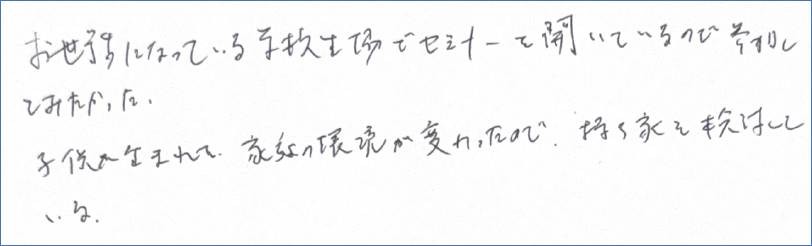 お世話になっている学校工場でセミナーを開いているので参加し
てみたかった.
子供が生まれて、家族の環境が変わったので、持ち家を検討して
いる.